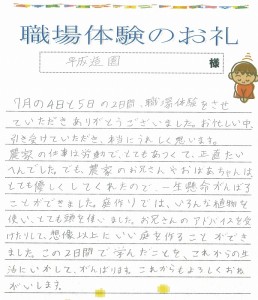 職場体験のお礼
平成造園 様
7月の4日と5日の2日間、職場体験をさせ
ていただきありがとうございました。お忙しい中、
引き受けていただき、本当にうれしく思います。
農家の仕事は労働で、とてもあつくて、正直たい
へんでした。でも、農家のお兄さんやおばあちゃんは
とても優しくしてくれたので、一生懸命がんばる
ことができました。庭作りでは、いろんな植物を
使い、とても頭を使いました。お兄さんのアドバイスを受け
たりして、想像以上にいい庭を作ることができ
ました。この2日間で学んだことを、これからの生
活にいかして、がんばります。これからもよろしくおね
がいします。